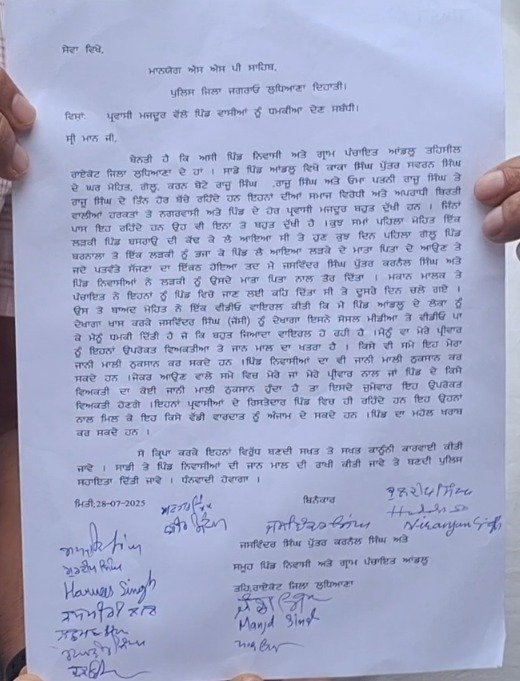 ਸੇਵਾ ਵਿਖੇ,
ਮਾਨਯੋਗ ਐਸ ਐਸ ਪੀ ਸਾਹਿਬ,
ਪੁਲਿਸ ਜਿਲਾ ਜਗਰਾਓ ਲੁਧਿਆਣਾ ਦਿਹਾਤੀ।
ਵਿਸ਼ਾ: ਪ੍ਰਵਾਸੀ ਮਜਦੂਰ ਵੱਲੋ ਪਿੰਡ ਵਾਸੀਆਂ ਨੂੰ ਧਮਕੀਆ ਦੇਣ ਸਬੰਧੀ।
ਸ੍ਰੀ ਮਾਨ ਜੀ,
ਬੇਨਤੀ ਹੈ ਕਿ ਅਸੀ ਪਿੰਡ ਨਿਵਾਸੀ ਅਤੇ ਗ੍ਰਾਮ ਪੰਚਾਇਤ ਆਂਡਲੂ ਤਹਿਸੀਲ
ਰਾਏਕੋਟ ਜਿਲਾ ਲੁਧਿਆਣਾ ਦੇ ਹਾਂ । ਸਾਡੇ ਪਿੰਡ ਆਂਡਲੂ ਵਿਖੇ ਕਾਕਾ ਸਿੰਘ ਪੁੱਤਰ ਸਵਰਨ ਸਿੰਘ
ਦੇ ਘਰ ਮੋਹਿਤ, ਗੋਲੂ, ਕਰਨ ਬੇਟੇ ਰਾਜੂ ਸਿੰਘ ,ਰਾਜੂ ਸਿੰਘ ਅਤੇ ਓਮਾ ਪਤਨੀ ਰਾਜੂ ਸਿੰਘ ਤੇ
ਰਾਜੂ ਸਿੰਘ ਦੇ ਤਿੰਨ ਹੋਰ ਬੱਚੇ ਰਹਿੰਦੇ ਹਨ ਇਹਨਾਂ ਦੀਆਂ ਸਮਾਜ ਵਿਰੋਧੀ ਅਤੇ ਅਪਰਾਧੀ ਬਿਰਤੀ
ਵਾਲੀਆਂ ਹਰਕਤਾਂ ਤੇ ਨਗਰਵਾਸੀ ਅਤੇ ਪਿੰਡ ਦੇ ਹੋਰ ਪ੍ਰਵਾਸੀ ਮਜਦੂਰ ਬਹੁਤ ਦੁੱਖੀ ਹਨ । ਜਿੰਨਾਂ
ਪਾਸ ਇਹ ਰਹਿੰਦੇ ਹਨ ਉਹ ਵੀ ਇਨਾ ਤੋ ਬਹੁਤ ਦੁੱਖੀ ਹੈ ।ਕੁਝ ਸਮਾਂ ਪਹਿਲਾ ਮੋਹਿਤ ਇੱਕ
ਲੜਕੀ ਪਿੰਡ ਬਸਰਾਉ ਦੀ ਕੱਢ ਕੇ ਲੈ ਆਇਆ ਸੀ ਤੇ ਹੁਣ ਕੁਝ ਦਿਨ ਪਹਿਲਾ ਗੋਲੂ ਪਿੰਡ
ਬਰਨਾਲਾ ਤੋ ਇੱਕ ਲੜਕੀ ਨੂੰ ਭਜਾ ਕੇ ਪਿੰਡ ਲੈ ਆਇਆ ਲੜਕੇ ਦੇ ਮਾਤਾ ਪਿਤਾ ਦੇ ਆਉਣ ਤੇ
ਜਦੋ ਪਤਵੰਤੇ ਸੱਜਣਾ ਦਾ ਇਕੱਠ ਹੋਇਆ ਤਦ ਮੈ ਜਸਵਿੰਦਰ ਸਿੰਘ ਪੁੱਤਰ ਕਰਨੈਲ ਸਿੰਘ ਅਤੇ
ਪਿੰਡ ਨਿਵਾਸੀਆਂ ਨੇ ਲੜਕੀ ਨੂੰ ਉਸਦੇ ਮਾਤਾ ਪਿਤਾ ਨਾਲ ਤੋਰ ਦਿੱਤਾ । ਮਕਾਨ ਮਾਲਕ ਤੇ
ਪੰਚਾਇਤ ਨੇ ਇਹਨਾਂ ਨੂੰ ਪਿੰਡ ਵਿਚੋ ਜਾਣ ਲਈ ਕਹਿ ਦਿੱਤਾ ਸੀ ਤੇ ਦੂਸਰੇ ਦਿਨ ਚਲੇ ਗਏ ।
ਉਸ ਤੋ ਬਾਅਦ ਮੋਹਿਤ ਨੇ ਇੱਕ ਵੀਡੀਓ ਵਾਇਰਲ ਕੀਤੀ ਕਿ ਮੈਂ ਪਿੰਡ ਆਂਡਲੂ ਦੇ ਲੋਕਾ ਨੂੰ
ਦੇਖਾਗਾ ਖਾਸ ਕਰਕੇ ਜਸਵਿੰਦਰ ਸਿੰਘ (ਜੱਸੀ) ਨੂੰ ਦੇਖਾਗਾ ਇਸਨੇ ਸੋਸਲ ਮੀਡੀਆ ਤੇ ਵੀਡੀਓ ਪਾ
ਕੇ ਮੈਨੂੰ ਧਮਕੀ ਦਿੱਤੀ ਹੈ ਜੋ ਕਿ ਬਹੁਤ ਜਿਆਦਾ ਵਾਇਰਲ ਹੋ ਰਹੀ ਹੈ ।ਮੈਨੂੰ ਵਾ ਮੇਰੇ ਪ੍ਰੀਵਾਰ
ਨੂੰ ਇਹਨਾਂ ਉਪਰੋਕਤ ਵਿਅਕਤੀਆ ਤੇ ਜਾਨ ਮਾਲ ਦਾ ਖਤਰਾ ਹੈ । ਕਿਸੇ ਵੀ ਸਮੇ ਇਹ ਮੇਰਾ
ਜਾਨੀ ਮਾਲੀ ਨੁਕਸਾਨ ਕਰ ਸਕਦੇ ਹਨ ।ਪਿੰਡ ਨਿਵਾਸੀਆਂ ਦਾ ਵੀ ਜਾਨੀ ਮਾਲੀ ਨੁਕਸਾਨ ਕਰ
ਸਕਦੇ ਹਨ ।ਜੇਕਰ ਆਉਣ ਵਾਲੇ ਸਮੇ ਵਿਚ ਮੇਰੇ ਜਾਂ ਮੇਰੇ ਪ੍ਰੀਵਾਰ ਨਾਲ ਜਾਂ ਪਿੰਡ ਦੇ ਕਿਸੇ
ਵਿਅਕਤੀ ਦਾ ਕੋਈ ਜਾਨੀ ਮਾਲੀ ਨੁਕਸਾਨ ਹੁੰਦਾ ਹੈ ਤਾ ਇਸਦੇ ਜੁਮੇਵਾਰ ਇਹ ਉਪਰੋਕਤ
ਵਿਅਕਤੀ ਹੋਣਗੇ ।ਇਹਨਾਂ ਪ੍ਰਵਾਸੀਆਂ ਦੇ ਰਿਸਤੇਦਾਰ ਪਿੰਡ ਵਿਚ ਹੀ ਰਹਿੰਦੇ ਹਨ ਇਹ ਉਹਨਾਂ
ਨਾਲ ਮਿਲ ਕੇ ਇਹ ਕਿਸੇ ਵੱਡੀ ਵਾਰਦਾਤ ਨੂੰ ਅੰਜਾਮ ਦੇ ਸਕਦੇ ਹਨ ।ਪਿੰਡ ਦਾ ਮਹੋਲ ਖਰਾਬ
ਕਰ ਸਕਦੇ ਹਨ ।
ਸੋ ਕ੍ਰਿਪਾ ਕਰਕੇ ਇਹਨਾਂ ਵਿਰੁੱਧ ਬਣਦੀ ਸਖਤ ਤੋ ਸਖਤ ਕਾਨੂੰਨੀ ਕਾਰਵਾਈ ਕੀਤੀ
ਜਾਵੇ । ਸਾਡੀ ਤੇ ਪਿੰਡ ਨਿਵਾਸੀਆਂ ਦੀ ਜਾਨ ਮਾਲ ਦੀ ਰਾਖੀ ਕੀਤੀ ਜਾਵੇ ਤੇ ਬਣਦੀ ਪੁਲਿਸ
ਸਹਾਇਤਾ ਦਿੱਤੀ ਜਾਵੇ । ਧੰਨਵਾਦੀ ਹੋਵਾਗਾ ।
ਮਿਤੀ:28-07-2025 ਬਿਨੈਕਾਰ
ਕੁਲਦੀਪ ਸਿੰਘ
ਜਸਵਿੰਦਰ ਸਿੰਘ Niranjan Singh
ਜਸਵਿੰਦਰ ਸਿੰਘ ਪੁੱਤਰ ਕਰਨੈਲ ਸਿੰਘ ਅਤੇ
ਗੁਰਦੀਪ ਸਿੰਘ
ਸਮੂਹ ਪਿੰਡ ਨਿਵਾਸੀ ਅਤੇ ਗ੍ਰਾਮ ਪੰਚਾਇਤ ਆਂਡਲੂ
Harwas Singh
ਤਹਿ:ਰਾਏਕੋਟ ਜਿਲਾ ਲੁਧਿਆਣਾ
Manjd Singh